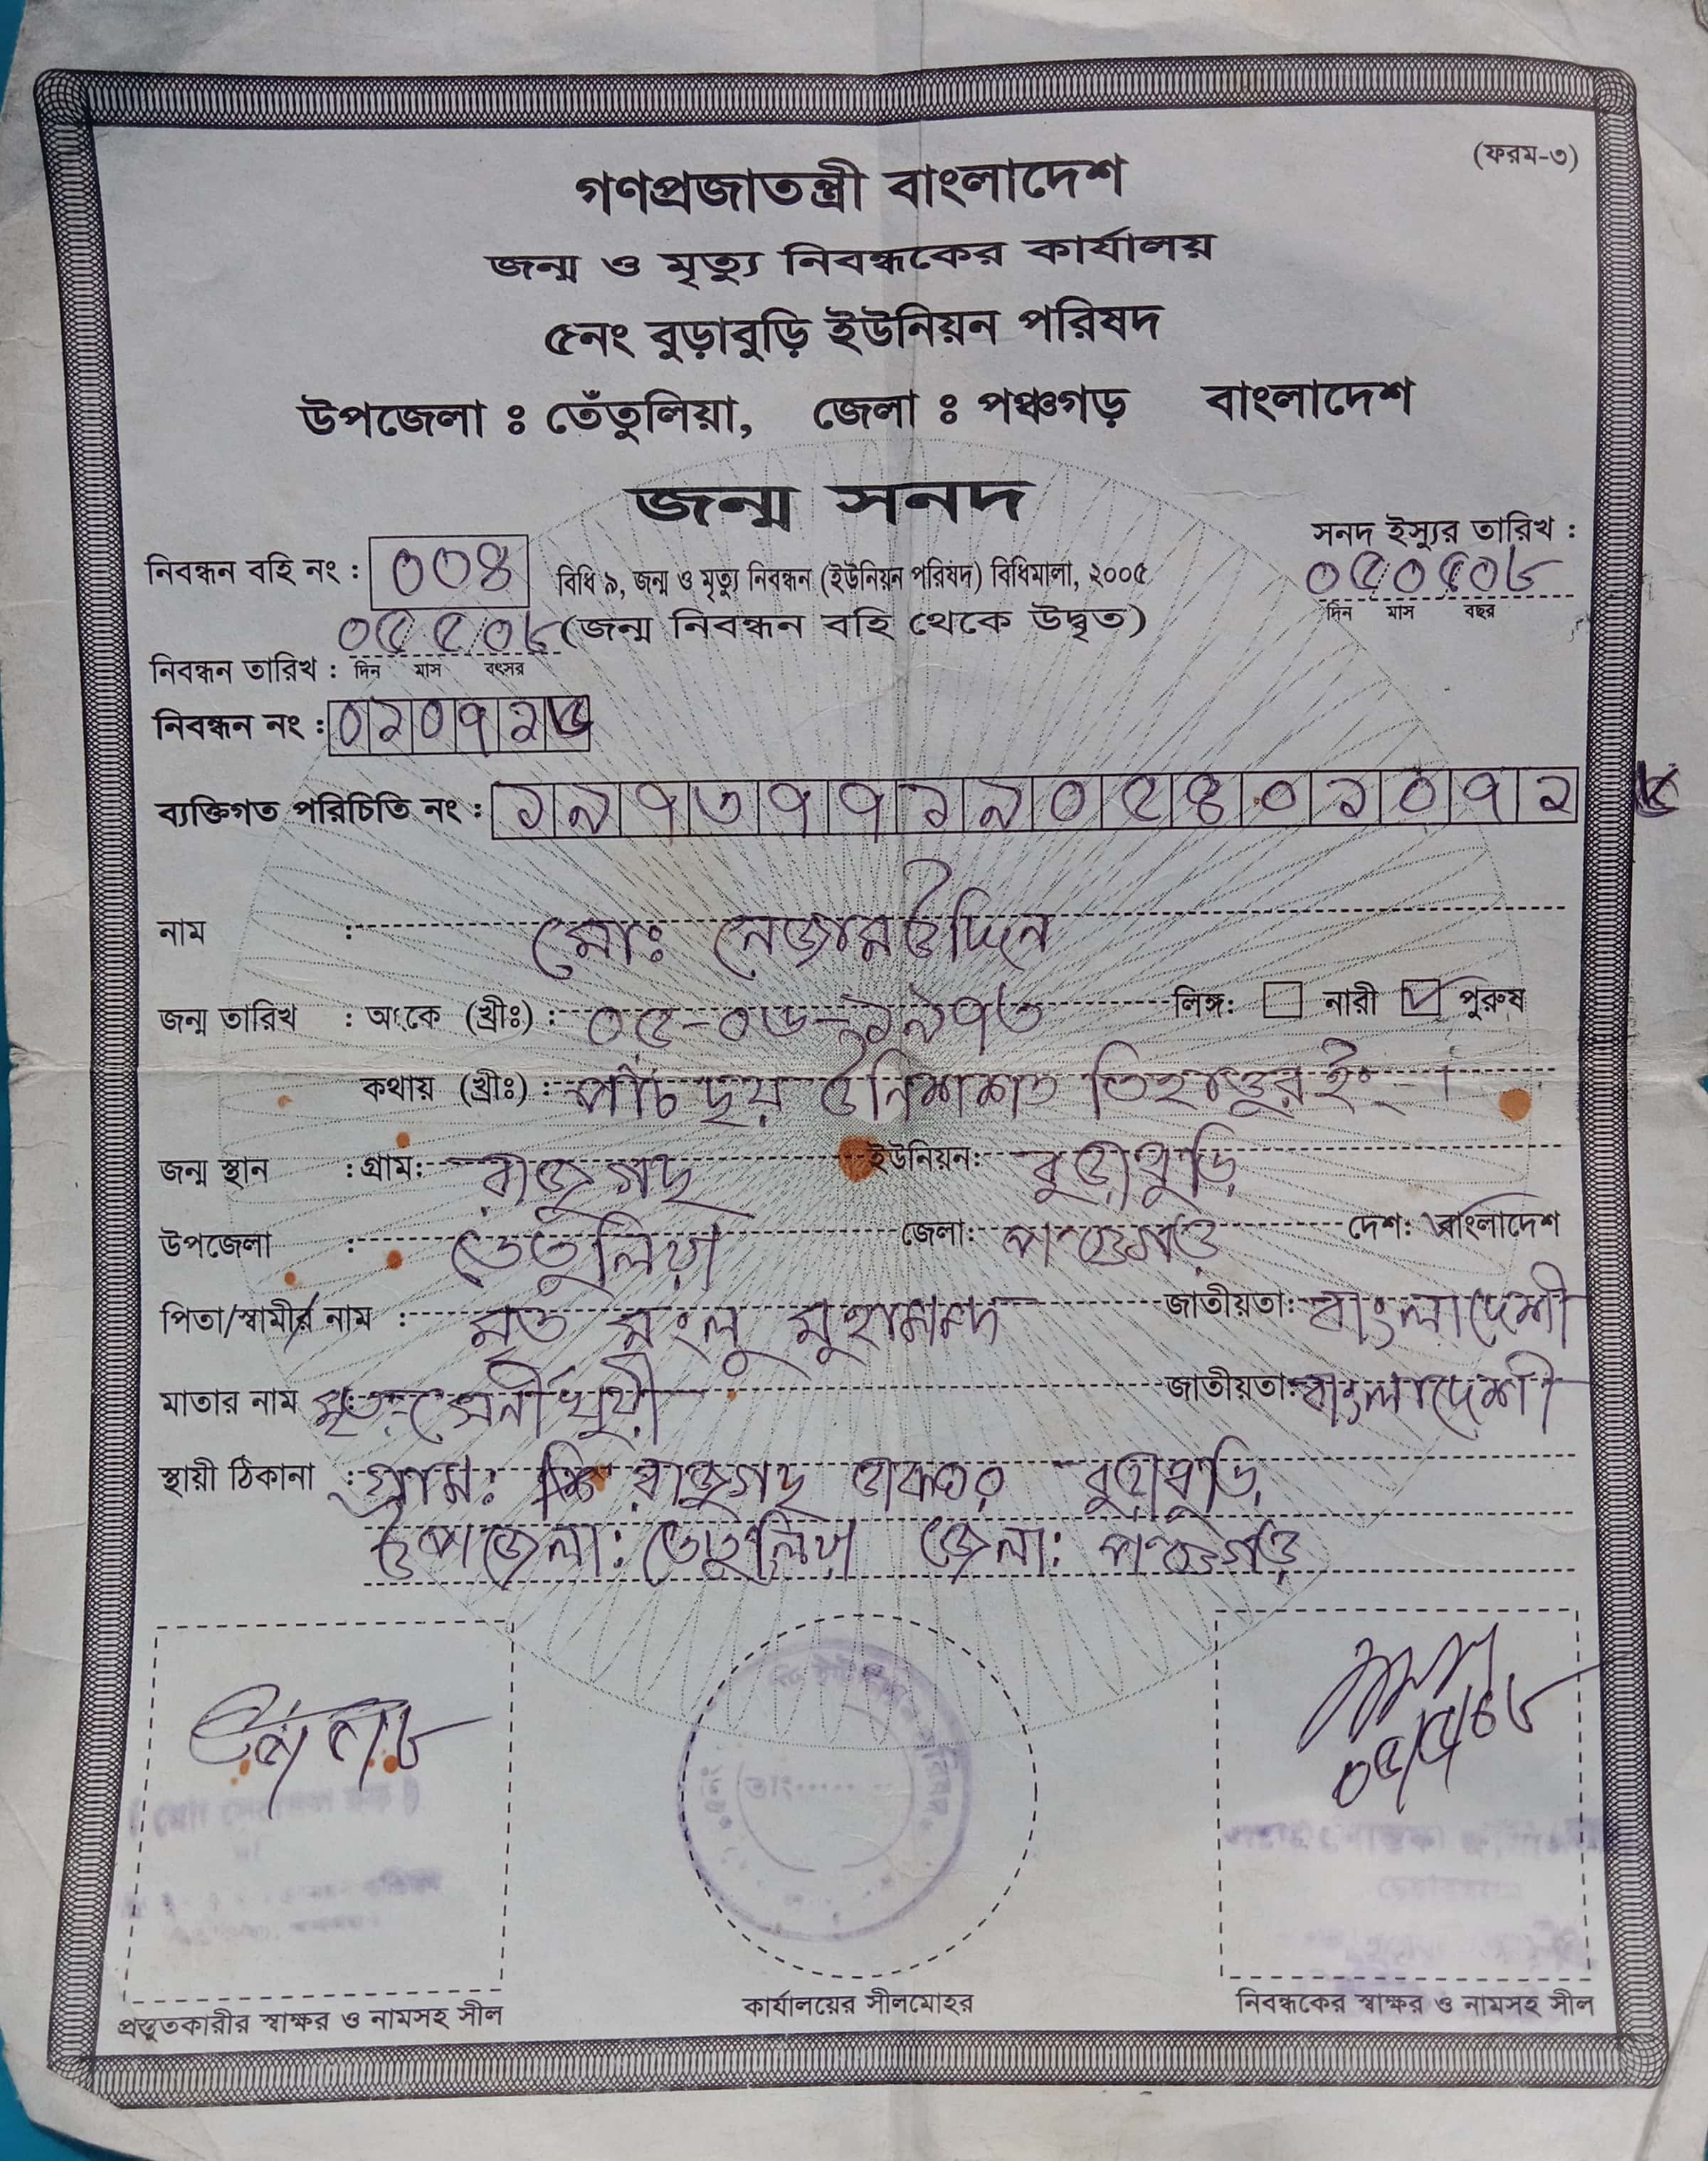 (ফরম-৩)
গণপ্রজাতন্ত্রী বাংলাদেশ
জন্ম ও মৃত্যু নিবন্ধকের কার্যালয়
৫নং বুড়াবুড়ি ইউনিয়ন পরিষদ
উপজেলা ঃ তেঁতুলিয়া, জেলা ঃ পঞ্চগড় বাংলাদেশ
জন্ম সনদ
সনদ ইস্যুর তারিখ :
নিবন্ধন বহি নং : ০০৪ বিধি ৯, জন্ম ও মৃত্যু নিবন্ধন (ইউনিয়ন পরিষদ) বিধিমালা, ২০০৫ ০৫ ০৫ ০৮
দিন মাস বছর
০৫ ৫ ০৮ (জন্ম নিবন্ধন বহি থেকে উদ্ধৃত)
নিবন্ধন তারিখ : দিন মাস বৎসর
নিবন্ধন নং : ০২০৭২৬
ব্যক্তিগত পরিচিতি নং : ১৯৭৩৭৭১৯০৫৪০২০৭২৬
নাম : মোঃ নেজামউদ্দিন
জন্ম তারিখ : অংকে (খ্রীঃ) : ০৫-০৬-১৯৭৩ লিঙ্গ: নারী পুরুষ
কথায় (খ্রীঃ) : পাঁচ ছয় উনিশশত তিহাত্তুর ইং
জন্ম স্থান : গ্রাম: বাজুগছ ইউনিয়ন: বুড়াবুড়ি
উপজেলা : তেতুলিয়া জেলা: পঞ্চগড় দেশ: বাংলাদেশ
পিতা/স্বামীর নাম : মৃত মংলু মুহাম্মদ জাতীয়তা: বাংলাদেশী
মাতার নাম মৃত: জাতীয়তা: বাংলাদেশী
স্থায়ী ঠিকানা : গ্রাম: বাজুগছ ডাকঘর বুড়াবুড়ি
উপজেলা: তেতুলিয়া জেলা: পঞ্চগড়
তাং......
০৫/৫/০৮
প্রস্তুতকারীর স্বাক্ষর ও নামসহ সীল
কার্যালয়ের সীলমোহর
নিবন্ধকের স্বাক্ষর ও নামসহ সীল